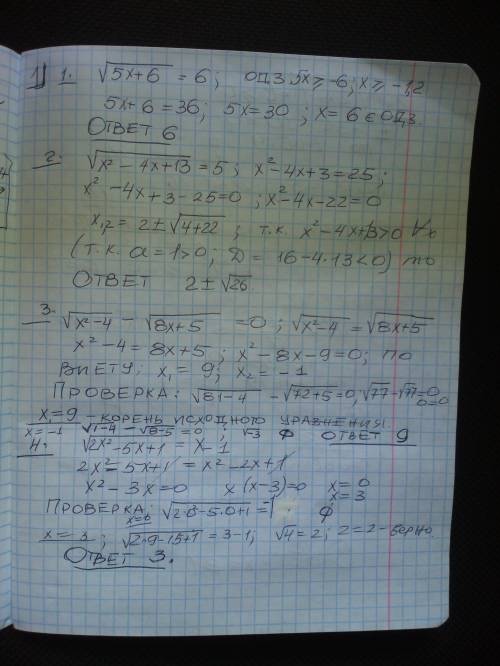 1) 1. √5x+6 = 6; ОДЗ 5x ≥ -6; x ≥ -1,2
5x+6 = 36; 5x = 30; x = 6 ∈ ОДЗ.
ОТВЕТ 6
2. √x² - 4x + 13 = 5; x² - 4x + 3 = 25;
x² - 4x + 3 - 25 = 0; x² - 4x - 22 = 0
x₁,₂ = 2 ± √4+22; т.к. x² - 4x + 13 > 0 ∀x
(т.к. a = 1 > 0; D = 16 - 4·13 < 0) то
ОТВЕТ 2 ± √26.
3. √x² - 4 - √8x+5 = 0; √x² - 4 = √8x+5
x² - 4 = 8x + 5; x² - 8x - 9 = 0; по
ВИЕТУ: x₁ = 9; x₂ = -1
ПРОВЕРКА: √81-4 - √72+5 = 0; √77 - √77 = 0
0=0
x₁ = 9 - корень исходного уравнения
x = -1 √1-4 - √-8-5 = 0; √-3 ф ОТВЕТ 9
4. √2x² - 5x + 1 = x - 1
2x² - 5x + 1 = x² - 2x + 1
x² - 3x = 0 x(x-3) = 0 x = 0
x = 3
Проверка: x=0 √2·0 - 5·0 + 1 = -1 ф
x = 3; √2·9 - 15 + 1 = 3 - 1; √4 = 2; 2 = 2 - верно
Ответ 3.